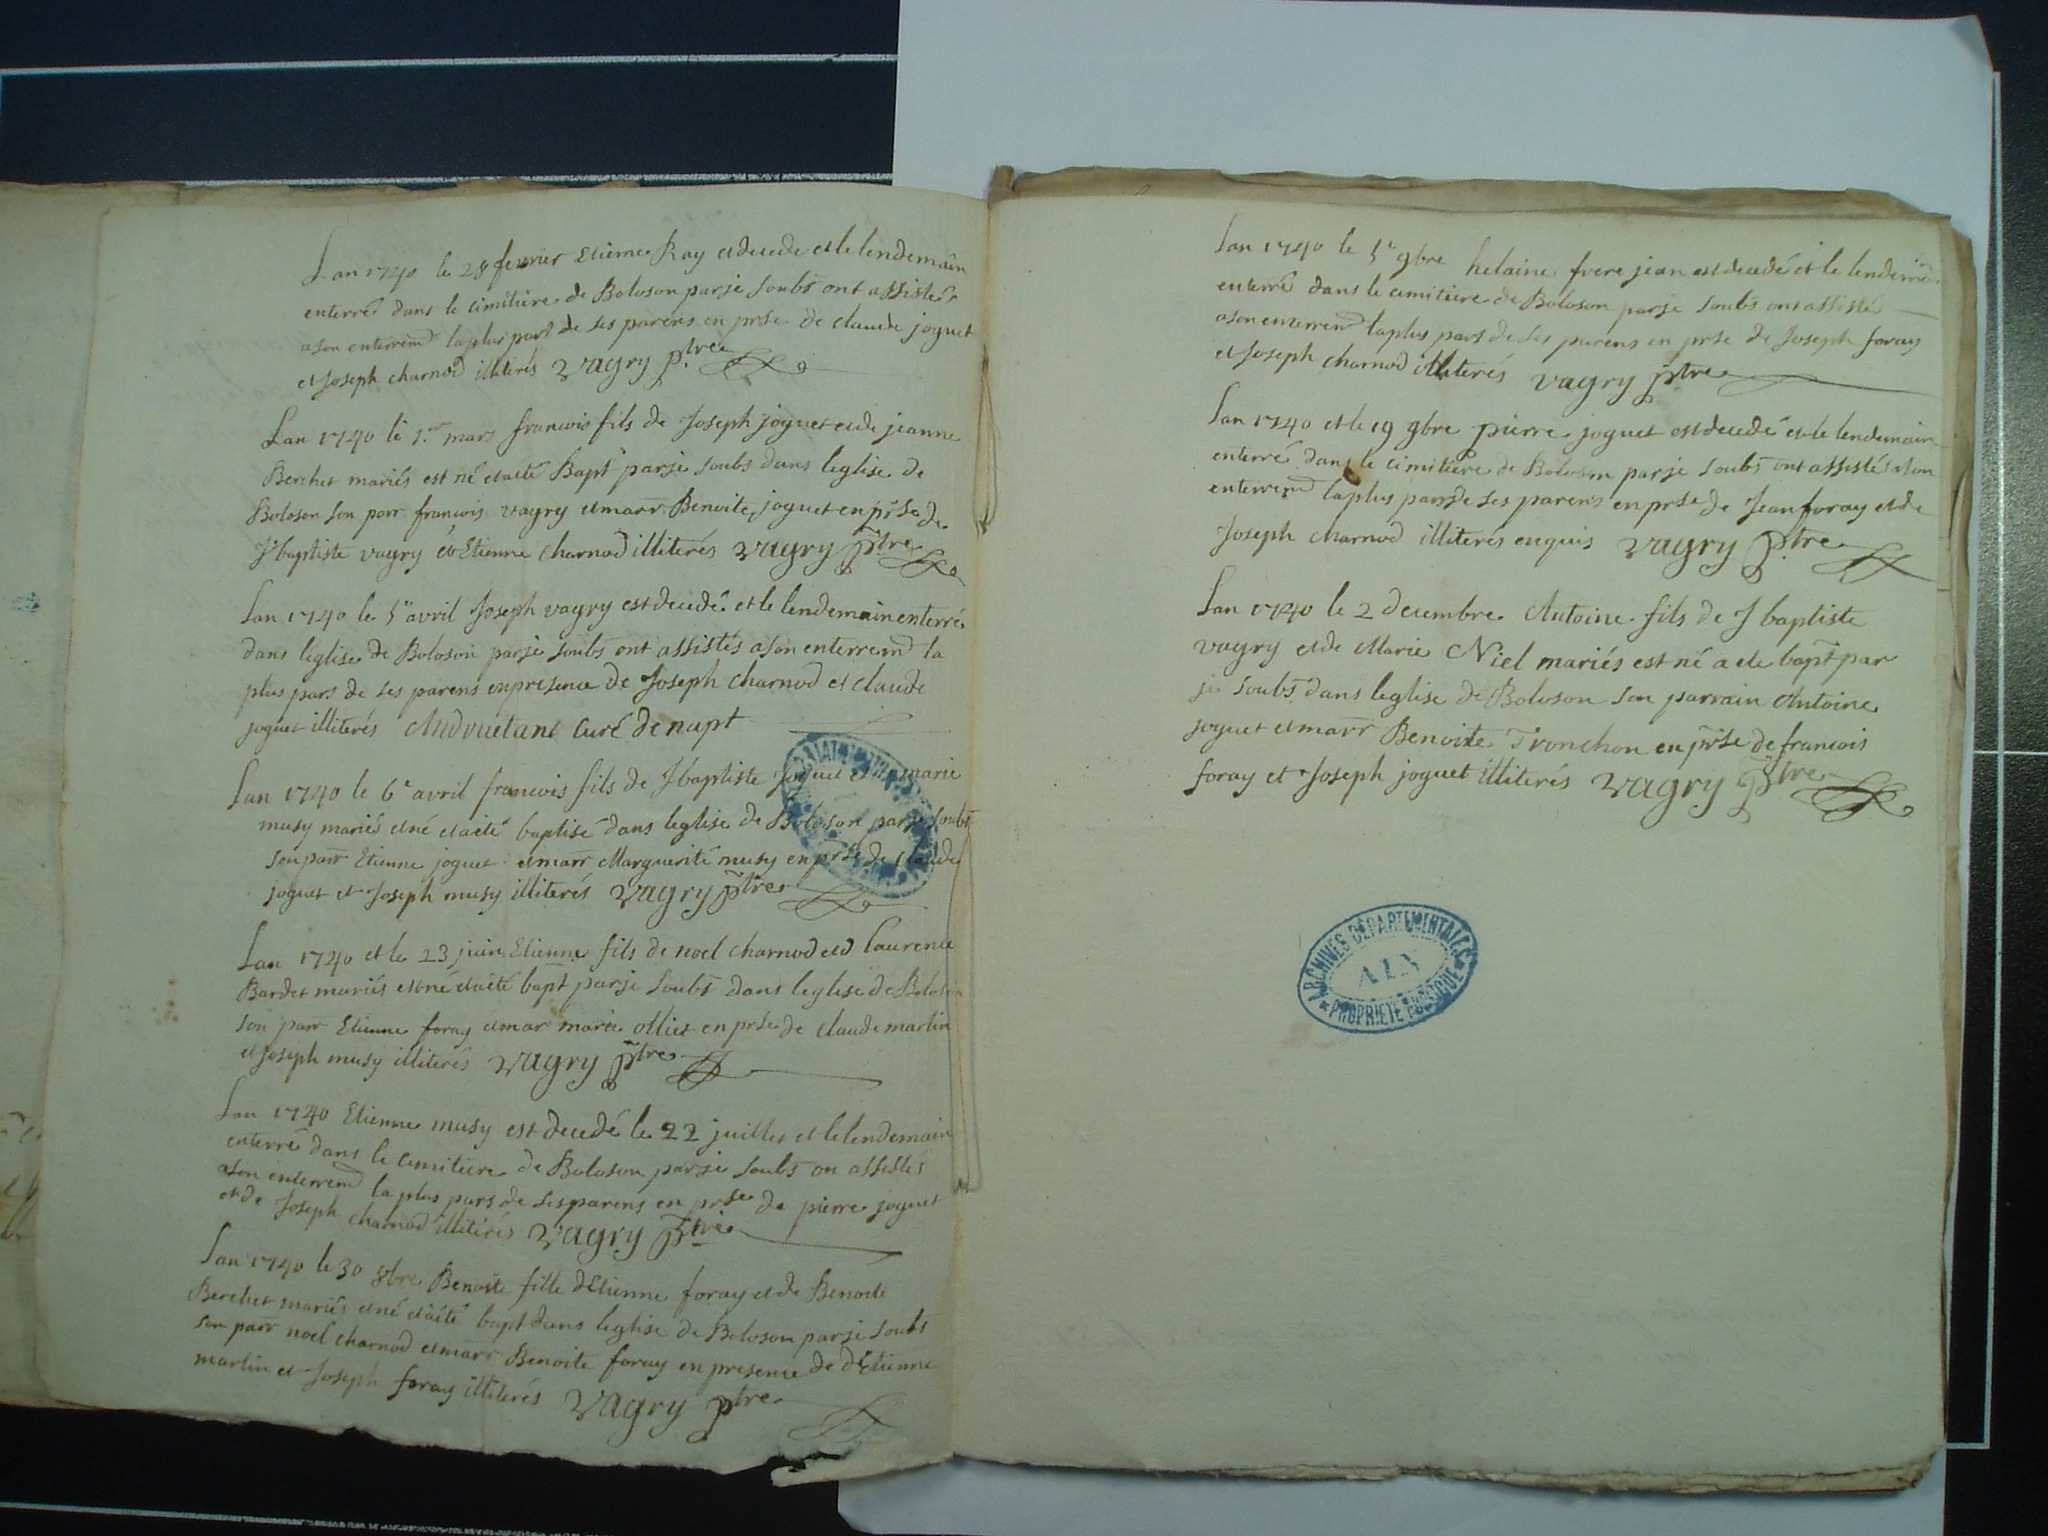 Lan 1740 le 28 fevrier Etiene Ray et decede et le lendemain
enterré dans le cimitiere de Boloson par je soubs ont assistés
a son enterremd la plus part de ses parens en prse de claude joguet
et Joseph charnod illiterés vagry ptre
Lan 1740 le 1.er mars francois fils de Joseph joguet et de jeanne
Berchet mariés est né et a eté Bapt par je soubs dans leglise de
Boloson son parr francois vagry et marr Benoite joguet en prse de
J baptiste vagry et Etienne charnod illiterés vagry ptre
Lan 1740 le 5e avril Joseph vagry est decedé et le lendemain enterré
dans leglise de Boloson par je soubs ont assistés a son enterremd la
plus pars de ses parens en presence de Joseph charnod et claude
joguet illiterés curé de napt
Lan 1740 le 6e avril francois fils de J baptiste joguet et de marie
musy mariés et né et a eté baptisé dans leglise de Boloson par je soubs
son parr Etienne joguet et marr Marguerite musy en prse de claude
joguet et Joseph musy illiterés vagry ptre
Lan 1740 et le 23 juin Etienne fils de noel charnod et d laurence
Bardet mariés est né et a eté bapt par je soubs dans leglise de Boloson
son parr Etienne foray et mar marie ollier en prse de claude martin
et Joseph musy illiterés vagry ptre
Lan 1740 Etienne musy est decedé le 22 juillet et le lendemain
enterré dans le cimitiere de Boloson par je soubs on assistés
a son enterremd la plus pars de ses parens en prse de pierre joguet
et de Joseph charnod illiterés vagry ptre
Lan 1740 le 30 8bre Benoite fille d Etienne foray et de Benoite
Berchet mariés et né et a eté bapt dans leglise de Boloson par je soubs
son parr noel charnod et marr Benoite foray en presence de d Etienne
martin et Joseph foray illiterés vagry ptre
Lan 1740 le 5e 9bre helaine frere jean est decedé et le lendemain
enterré dans le cimitiere de Boloson par je soubs ont assistés
a son enterremd la plus pars de ses parens en prse de Joseph foray
et Joseph charnod illiterés vagry ptre
Lan 1740 et le 19 9bre pierre joguet est decedé et le lendemain
enterré dans le cimitiere de Boloson par je soubs ont assistés a son
enterremd la plus pars de ses parens en prse de Jean foray et de
Joseph charnod illiterés enquis vagry ptre
Lan 1740 le 2 decembre Antoine fils de J baptiste
vagry et de Marie Niel mariés est né a ete bapt par
je soubs dans leglise de Boloson son parrain Antoine
joguet et marr Benoite Tronchon en prse de francois
foray et Joseph joguet illiterés vagry ptre
ARCHIVES DÉPARTEMENTALES
AIN
PROPRIÉTÉ PUBLIQUE